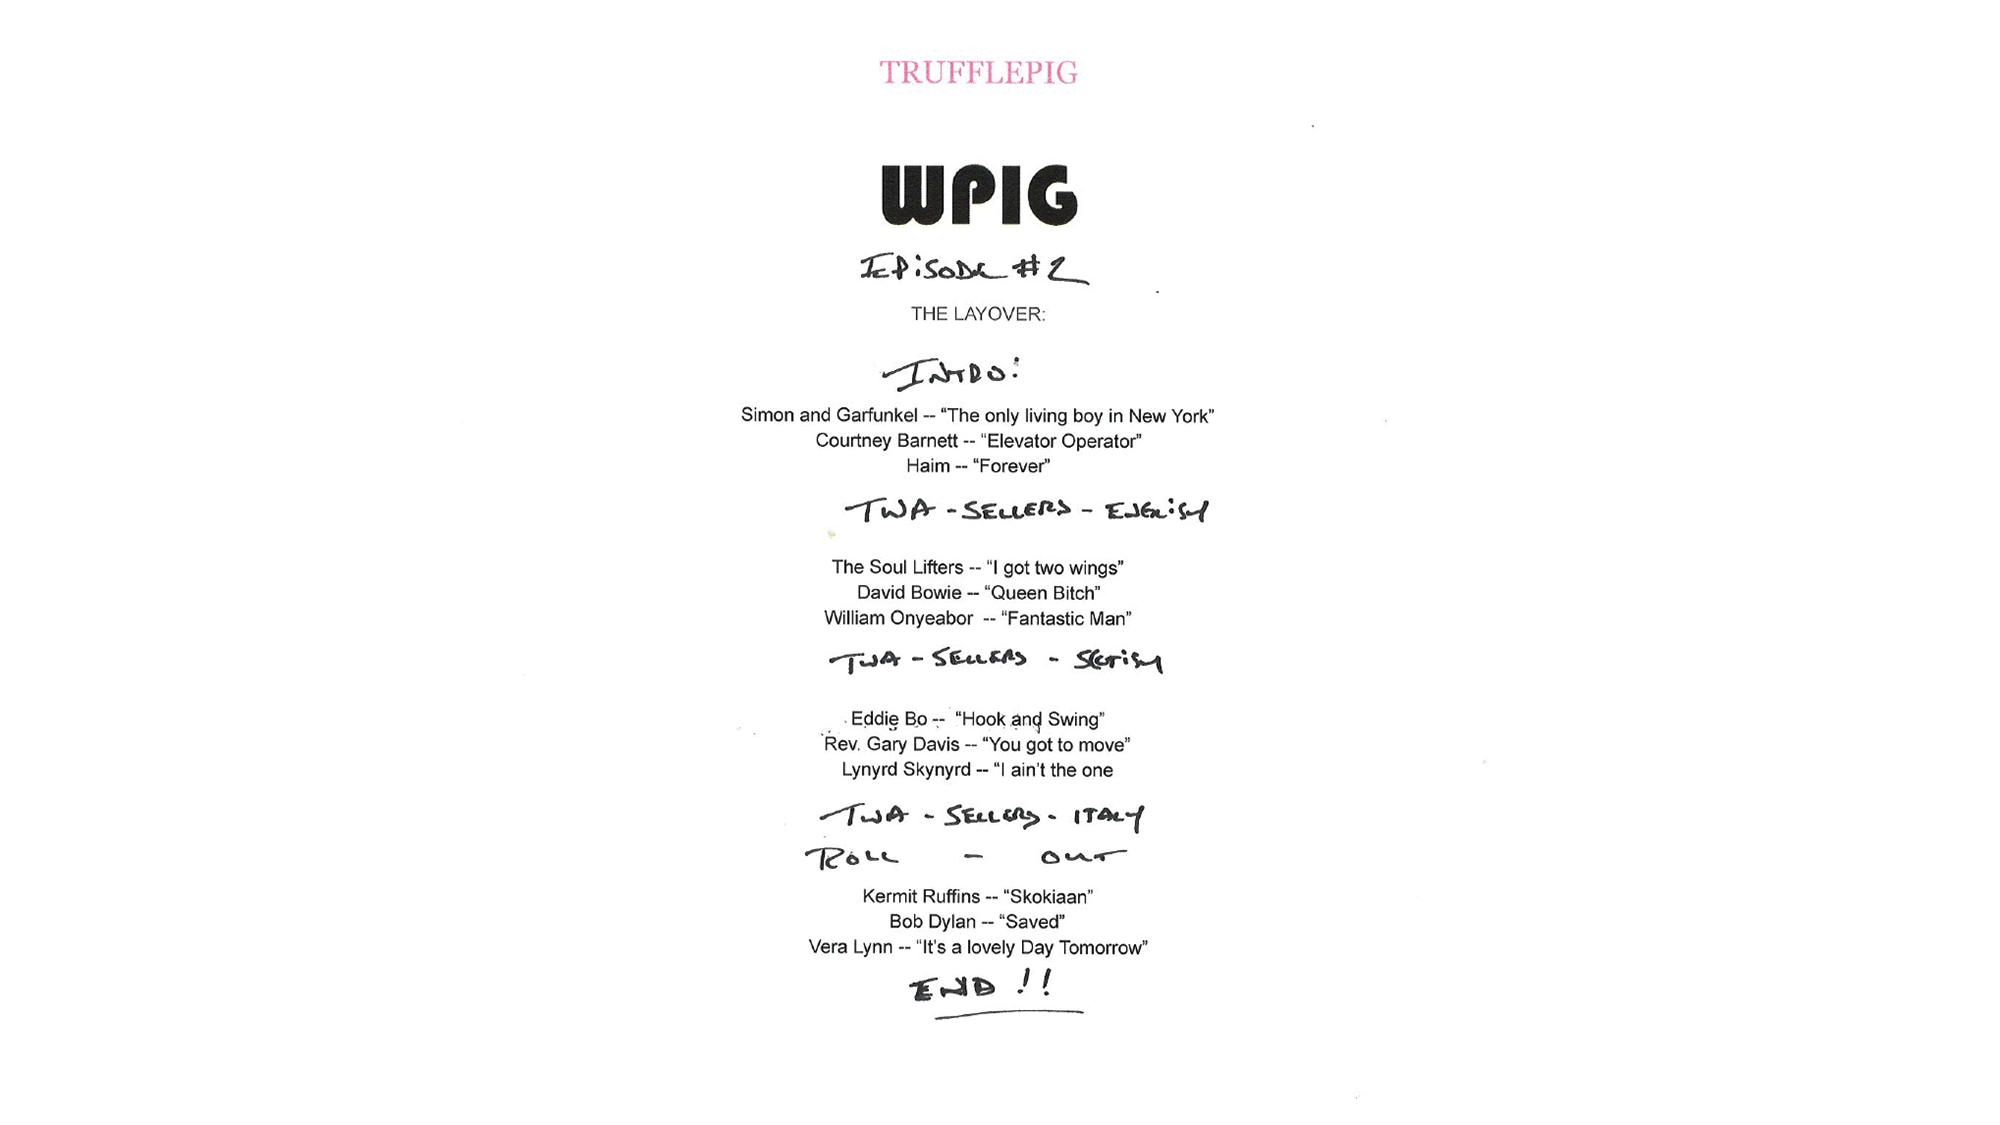 TRUFFLEPIG
WPIG
EPiSODE #2
THE LAYOVER:
INTRO:
Simon and Garfunkel -- “The only living boy in New York”
Courtney Barnett -- “Elevator Operator”
Haim -- “Forever”
TWA - SELLERS - ENGLiSH
The Soul Lifters -- “I got two wings”
David Bowie -- “Queen Bitch”
William Onyeabor -- “Fantastic Man”
TWA - SELLERS - SCOTiSH
Eddie Bo -- “Hook and Swing”
Rev. Gary Davis -- “You got to move”
Lynyrd Skynyrd -- “I ain’t the one
TWA - SELLERS - ITALY
ROLL - OUT
Kermit Ruffins -- “Skokiaan”
Bob Dylan -- “Saved”
Vera Lynn -- “It’s a lovely Day Tomorrow”
END !!